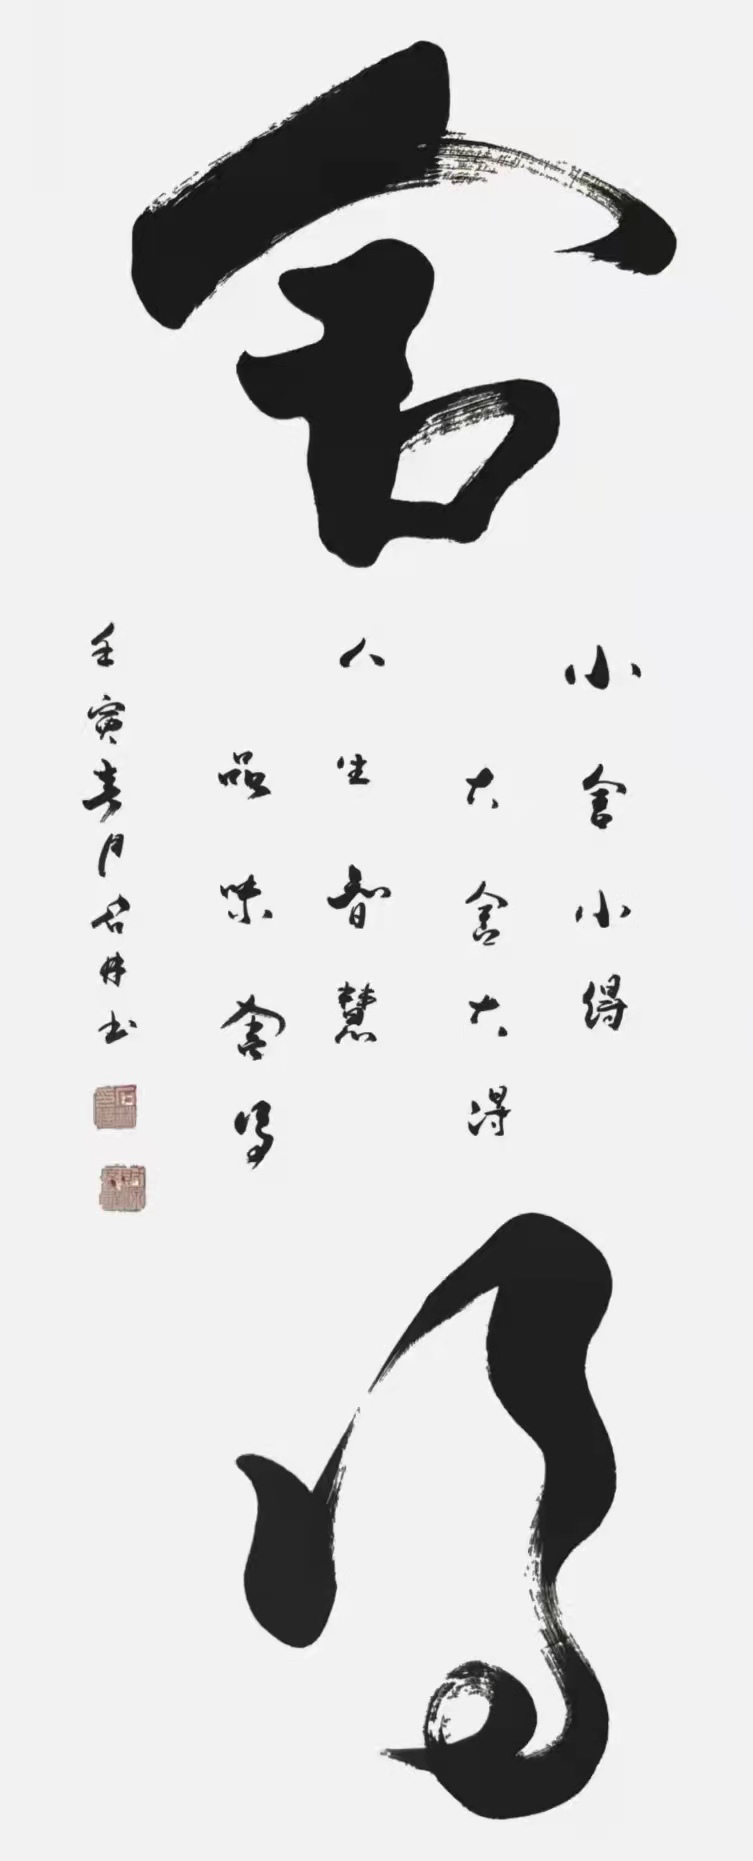 舍
小舍小得
大舍大得
人生智慧
品味舍得
壬寅春月君林书
得